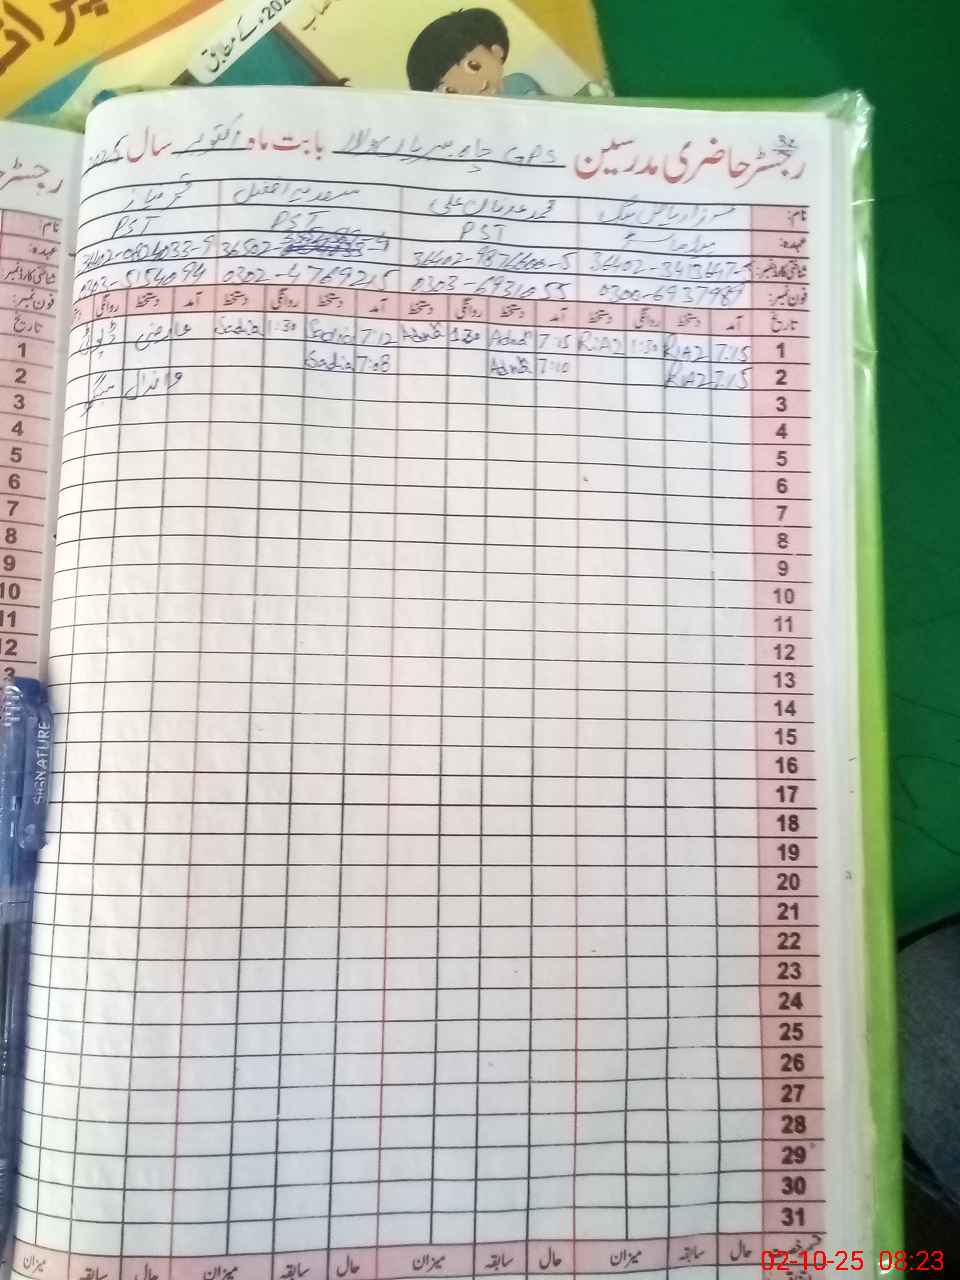 کے مطابق
رجسٹر حاضری مدرسین GPS چاہ بابت ماہ اکتوبر سال 2025
32
نام: مرزا ریاض بیگ محمد عدنان علی سعدیہ
عہدہ: PST PST PST
شناختی کارڈ نمبر:
فون نمبر: 0300-6937989 0303-6931055 0302-4769215 0303-5154094
تاریخ آمد دستخط روانگی دستخط آمد دستخط روانگی دستخط آمد دستخط روانگی دستخط آمد دستخط روانگی
1 7:15 RIAZ 1:30 RIAZ 7:15 Adnan 1:30 Adnan 7:12 Sadia 1:30 Sadia عارضی ڈیوٹی
2 7:15 RIAZ 7:10 Adnan 7:08 Sadia
3
4
5
6
7
8
9
10
11
12
13
14
15
16
17
18
19
20
21
22
23
24
25
26
27
28
29
30
31
حال سابقہ میزان حال سابقہ میزان حال سابقہ میزان حال سابقہ میزان
رجسٹر
نام:
عہدہ:
شناختی کارڈ نمبر:
فون نمبر:
تاریخ
1
2
3
4
5
6
7
8
9
10
11
12
SIGNATURE
02-10-25 08:23